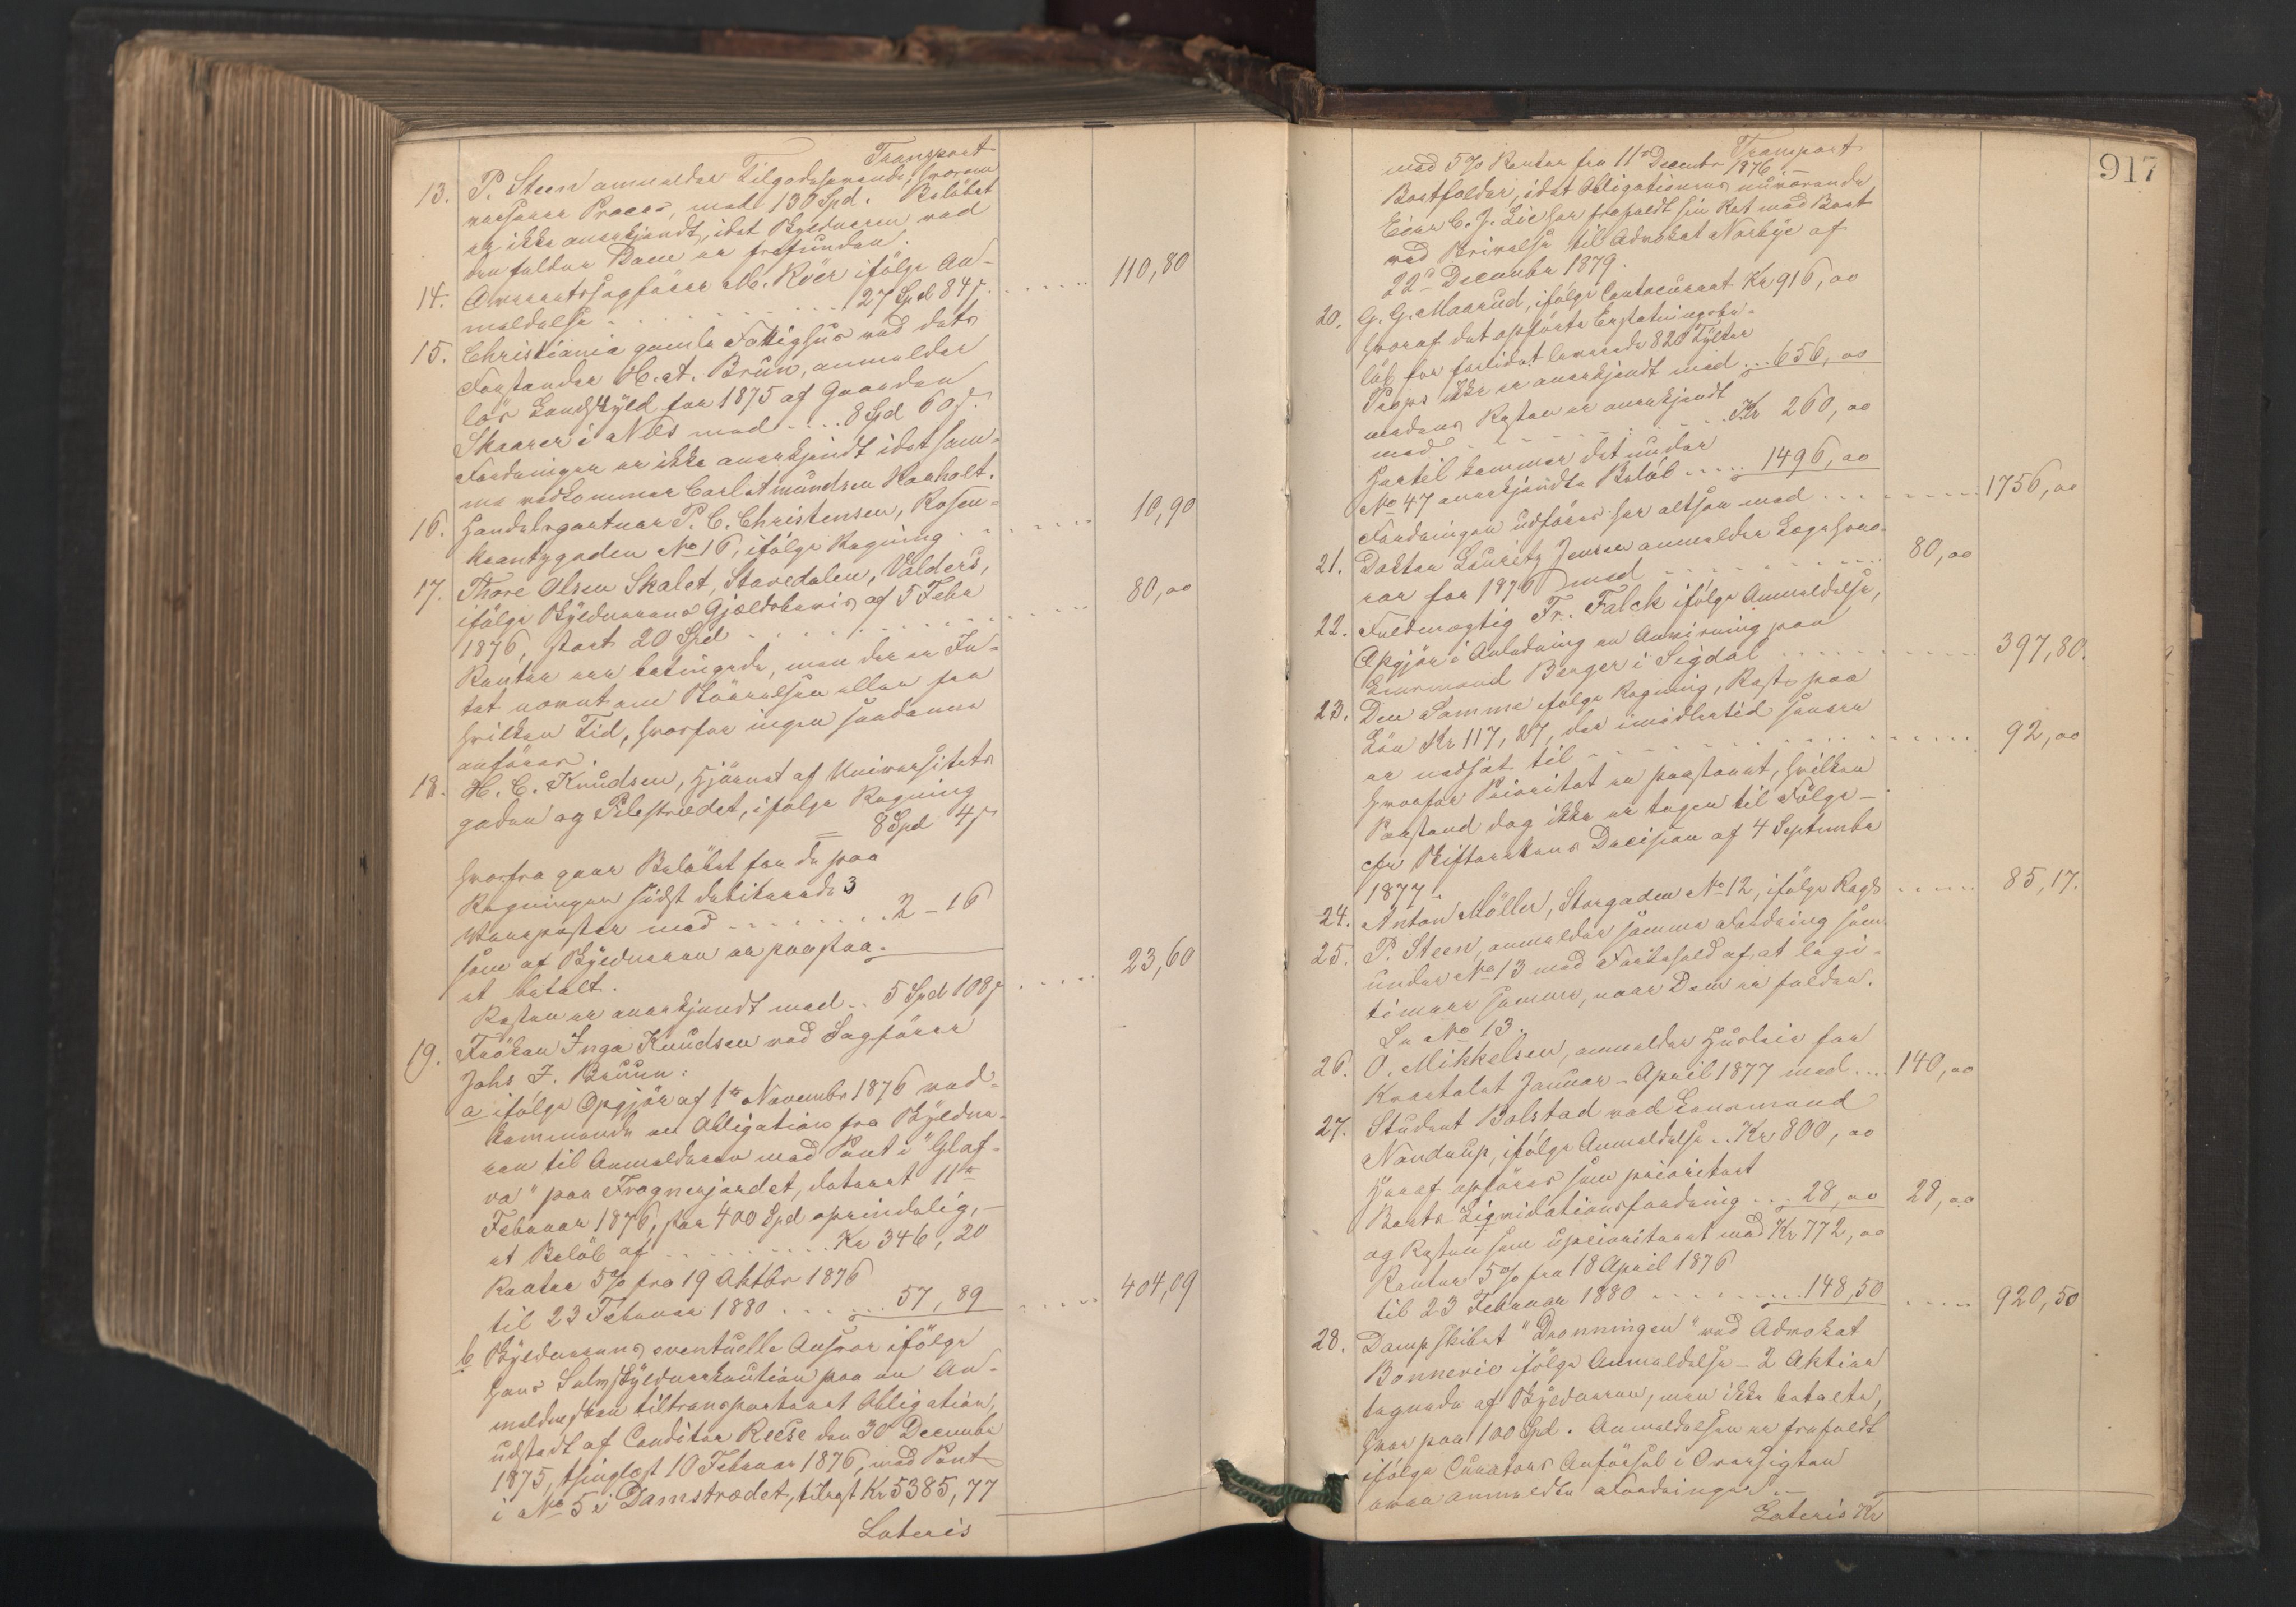 Transport
13. P. Steen anmelder Tilgodehavende, hvorom
verserer Proces, med 130 Spd. Beløbet
er ikke anerkjendt, idet Skyldneren ved
den faldne Dom er frifunden.
14. Overretssagfører M. Röer ifølge An-
meldelse . . . . . . 27 Spd 84 s. . . . . . 110,80
15. Christiania gamle Fattighus ved dets
Forstander H. A. Brun, anmelder
løs Landskyld for 1875 af Gaarden
Skaarer i Næs med . . . . 8 Spd 60 s.
Fordringen er ikke anerkjendt idet sam-
me vedkommer Carl Amundsen Haaholt.
16. Handelsgartner P. C. Christensen, Rosen-
krantzgaden No 16, ifølge Regning . . . . . . 10,90
17. Thore Olsen Skalet, Stavedalen, Valders,
ifølge Skyldnerens Gjældsbevis af 5 Febr
1876, stort 20 Spd . . . . . . 80,00
Renter ere betingede, men der er In-
tet nævnt om Størrelsen eller fra
hvilken Tid, hvorfor ingen saadanne
anføres.
18. H. C. Knudsen, Hjørnet af Universitets
gaden og Pilestrædet, ifølge Regning
= 8 Spd 4 s
hvorfra gaar Beløbet for de paa
Regningen sidst debiterede 3
Vareposter med . . . . . . 2 – 16
som af Skyldneren er paastaa-
et betalt.
Resten er anerkjendt med . . 5 Spd 108 s . . . . . 23,60
19. Frøken Inga Knudsen ved Sagfører
Johs J. Bruun:
a ifølge Opgjør af 1ste Novembr 1876 ved-
kommende en Obligation fra Skyldne-
ren til Anmelderen med Pant i "Glas-
va" paa Frognerjordet, dateret 11te
Februar 1876, stor 400 Spd oprindelig, –
et Beløb af . . . . . . Kr 346,20
Renter 5% fra 19 Oktbr 1876
til 23 Februar 1880 . . . . . . 57,89 . . . . 404,09
b Skyldnerens eventuelle Ansvar ifølge
hans Selvskyldnerkaution paa en An-
melderen tiltransporteret Obligation,
udstedt af Conditor Reese den 30 Decembr
1875, thinglæst 10 Februar 1876, med Pant
i No 5 i Damstrædet, tilrest Kr 5385,77
Lateris
917
Transport
med 5% Renter fra 11te Decembr 1876. –
Bortfalder, idet Obligationens nuværende
Eier C. J. Lie har frafaldt sin Ret mod Boet
ved Skrivelse til Advokat Nørbye af
22de Decembr 1879.
20. G. G. Maarud, ifølge Contocurant Kr 916,00
hvoraf det opførte Erstatningsbe-
løb for forlidet leverede 820 Tylter
Props ikke er anerkjendt med . . . 656,00
medens Resten er anerkjendt
med . . . . . . Kr 260,00
Hertil kommer det under
No 47 anerkjendte Beløb . . . . . 1496,00
Fordringen udføres her altsaa med . . . . . . 1756,00
21. Doktor Lauritz Jensen anmelder Lægehono-
rar for 1876 med . . . . . . 80,00
22. Fuldmægtig Fr. Falck ifølge Anmeldelse,
Opgjør i Anledning en Anvisning paa
Lensmand Berger i Sigdal . . . . . . 397,80.
23. Den Samme ifølge Regning, Rest paa
Løn Kr 117,27, der imidlertid senere
er nedsat til . . . . . . 92,00
hvorfor Prioritet er paastaaet, hvilken
Paastand dog ikke er tagen til Følge –
cfr Skifterettens Decision af 4 Septembr
1877.
24. Anton Møller, Storgaden No 12, ifølge Regn. . . . . . 85,17.
25. P. Steen, anmelder samme Fordring som
under No 13 med Forbehold af at legi-
timere samme, naar Dom er falden.
Se No 13.
26. O. Mikkelsen, anmelder Husleie for
Kvartalet Januar – April 1877 med . . . . 140,00
27. Student Bolstad ved Lensmand
Nandrup, ifølge Anmeldelse . . Kr 800,00
Heraf opføres som prioriteret
Boets Liqvidationsfordring . . . 28,00 28,00
og Resten som uprioriteret med Kr 772,00
Renter 5% fra 18 April 1876
til 23 Februar 1880 . . . . . . 148,50 . . . . . 920,50
28. Dampskibet "Dronningen" ved Advokat
Bonnevie ifølge Anmeldelse – 2 Aktier
tegnede af Skyldneren, men ikke betalte,
hver paa 100 Spd. Anmeldelsen er frafaldt
ifølge Curators Anførsel i Oversigten
over anmeldte Fordringer. –
Lateris Kr